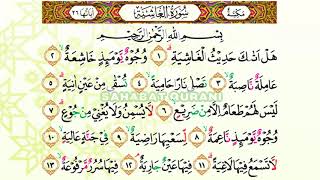 مكية سورة الغاشية آياتها ٢٦
بِسْمِ اللَّهِ الرَّحْمَٰنِ الرَّحِيمِ
هَلْ أَتَىٰكَ حَدِيثُ الْغَاشِيَةِ ١ وُجُوهٌ يَوْمَئِذٍ خَاشِعَةٌ ٢
عَامِلَةٌ نَّاصِبَةٌ ٣ تَصْلَىٰ نَارًا حَامِيَةً ٤ تُسْقَىٰ مِنْ عَيْنٍ آنِيَةٍ ٥
لَّيْسَ لَهُمْ طَعَامٌ إِلَّا مِن ضَرِيعٍ ٦ لَّا يُسْمِنُ وَلَا يُغْنِي مِن جُوعٍ ٧
وُجُوهٌ يَوْمَئِذٍ نَّاعِمَةٌ ٨ لِّسَعْيِهَا رَاضِيَةٌ ٩ فِي جَنَّةٍ عَالِيَةٍ ١٠
لَّا تَسْمَعُ فِيهَا لَاغِيَةً ١١ فِيهَا عَيْنٌ جَارِيَةٌ ١٢ فِيهَا سُرُرٌ مَّرْفُوعَةٌ ١٣